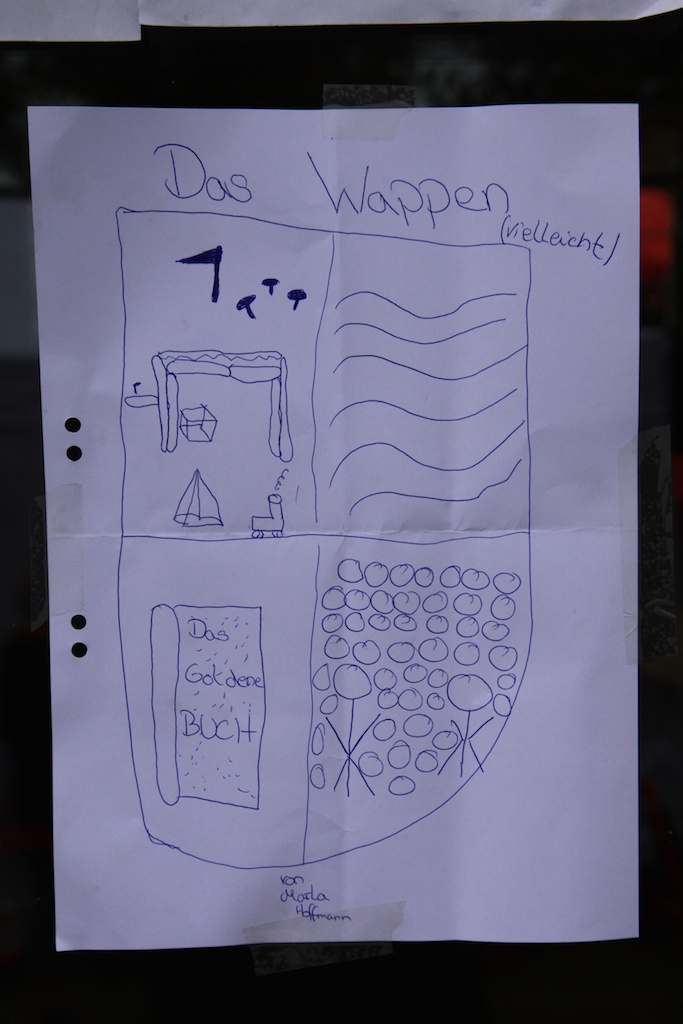 Das Wappen
(vielleicht)
Das
Goldene
BUCH
von
Marla
Hoffmann